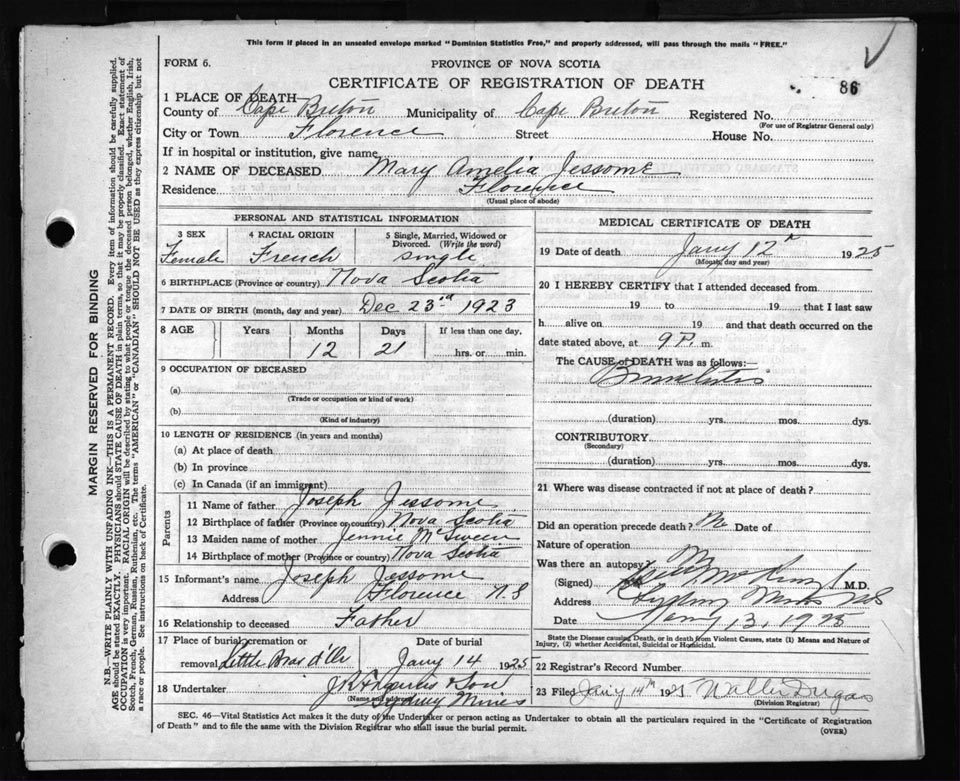 This form if placed in an unsealed envelope marked "Dominion Statistics Free," and properly addressed, will pass through the mails "FREE."
FORM 6.
PROVINCE OF NOVA SCOTIA
CERTIFICATE OF REGISTRATION OF DEATH
86
1 PLACE OF DEATH—
County of Cape Breton Municipality of Cape Breton Registered No.
(For use of Registrar General only)
City or Town Florence Street House No.
If in hospital or institution, give name
2 NAME OF DECEASED Mary Amelia Jessome
Residence Florence
(Usual place of abode)
PERSONAL AND STATISTICAL INFORMATION
3 SEX 4 RACIAL ORIGIN 5 Single, Married, Widowed or Divorced. (Write the word)
Female French single
6 BIRTHPLACE (Province or country) Nova Scotia
7 DATE OF BIRTH (month, day and year) Dec 23rd 1923
8 AGE Years Months Days If less than one day,
12 21 hrs. or min.
9 OCCUPATION OF DECEASED
(a)
(Trade or occupation or kind of work)
(b)
(Kind of industry)
10 LENGTH OF RESIDENCE (in years and months)
(a) At place of death
(b) In province
(c) In Canada (if an immigrant)
Parents
11 Name of father Joseph Jessome
12 Birthplace of father (Province or country) Nova Scotia
13 Maiden name of mother Jennie McSween
14 Birthplace of mother (Province or country) Nova Scotia
15 Informant's name Joseph Jessome
Address Florence N.S
16 Relationship to deceased Father
17 Place of burial, cremation or removal Little Bras d'Or
Date of burial Jany 14 1925
18 Undertaker & Son
(Name and address) Sydney Mines
MEDICAL CERTIFICATE OF DEATH
19 Date of death Jany 12th 1925
(Month, day and year)
20 I HEREBY CERTIFY that I attended deceased from
19 to 19 that I last saw
h alive on 19 and that death occurred on the
date stated above, at 9 P. m.
The CAUSE of DEATH was as follows:—
Bronchitis
(duration) yrs. mos. dys.
CONTRIBUTORY
(Secondary)
(duration) yrs. mos. dys.
21 Where was disease contracted if not at place of death?
Did an operation precede death? No Date of
Nature of operation
Was there an autopsy? No
(Signed) M.D.
Address Sydney Mines NS
Date Jany 13, 1925
State the Disease causing Death, or in death from Violent Causes, state (1) Means and Nature of Injury, (2) whether Accidental, Suicidal or Homicidal.
22 Registrar's Record Number
23 Filed Jany 14th 1925 Walter Dugas
(Division Registrar)
SEC. 46—Vital Statistics Act makes it the duty of the Undertaker or person acting as Undertaker to obtain all the particulars required in the "Certificate of Registration
of Death" and to file the same with the Division Registrar who shall issue the burial permit.
(OVER)
MARGIN RESERVED FOR BINDING
N.B.—WRITE PLAINLY WITH UNFADING INK—THIS IS A PERMANENT RECORD. Every item of information should be carefully supplied.
AGE should be stated EXACTLY. PHYSICIANS should STATE CAUSE OF DEATH in plain terms, so that it may be properly classified. Exact statement of
OCCUPATION is very important. RACIAL ORIGIN will be described by stating to what people or tongue the deceased person belonged, whether English, Irish,
Scotch, French, German, Russian, Ruthenian, etc. The terms "AMERICAN" or "CANADIAN" SHOULD NOT BE USED as they express citizenship but not
a race or people. See instructions on back of Certificate.